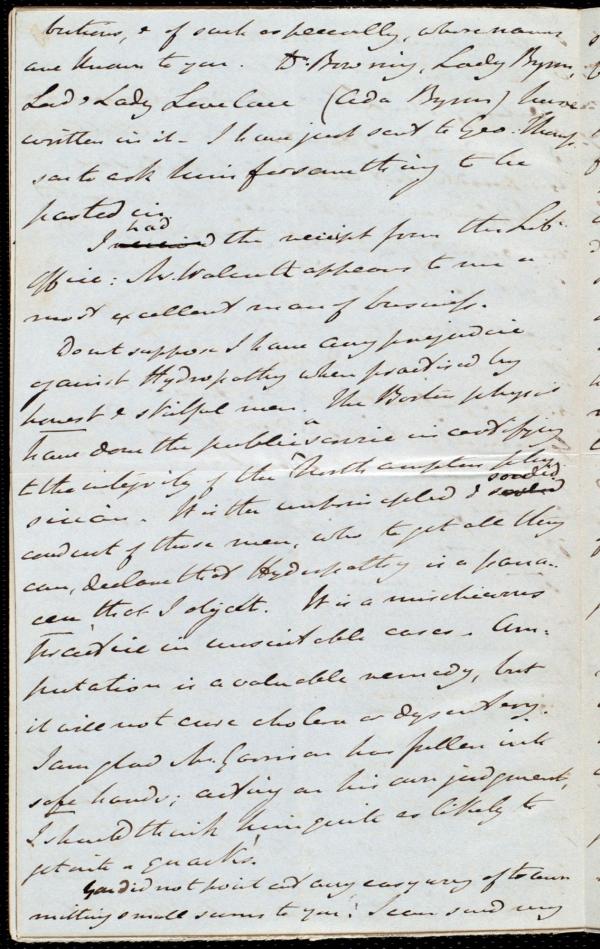 butions, & of such especially, whose names
are known to you. Dr. Bowring, Lady Byron,
Lord & Lady Lovelace (Ada Byron) have
written in it – I have just sent to Geo: Thomp-
son to ask him for something to be
pasted in.
I had received the receipt from the Lib.
Office: Mr. Walcutt appears to me a
most excellent man of business.
Dont suppose I have any prejudice
against Hydropathy when practised by
honest & skilful men. The Boston physns
have done the public a service in certifying
to the integrity of the Northampton phy-
sician. It is the unprincipled & sordid
conduct of those men, who to get all they
can, declare that Hydropathy is a pana-
cea, that I object. It is a mischievous
practice in unsuitable cases. Am-
putation is a valuable remedy, but
it will not cure cholera or dysentery.
I am glad Mr. Garrison has fallen into
safe hands; acting on his own judgment,
I should think him quite as likely to
get into a quack's.
You did not point out any easy way of trans
mitting small sums to you. I can send my